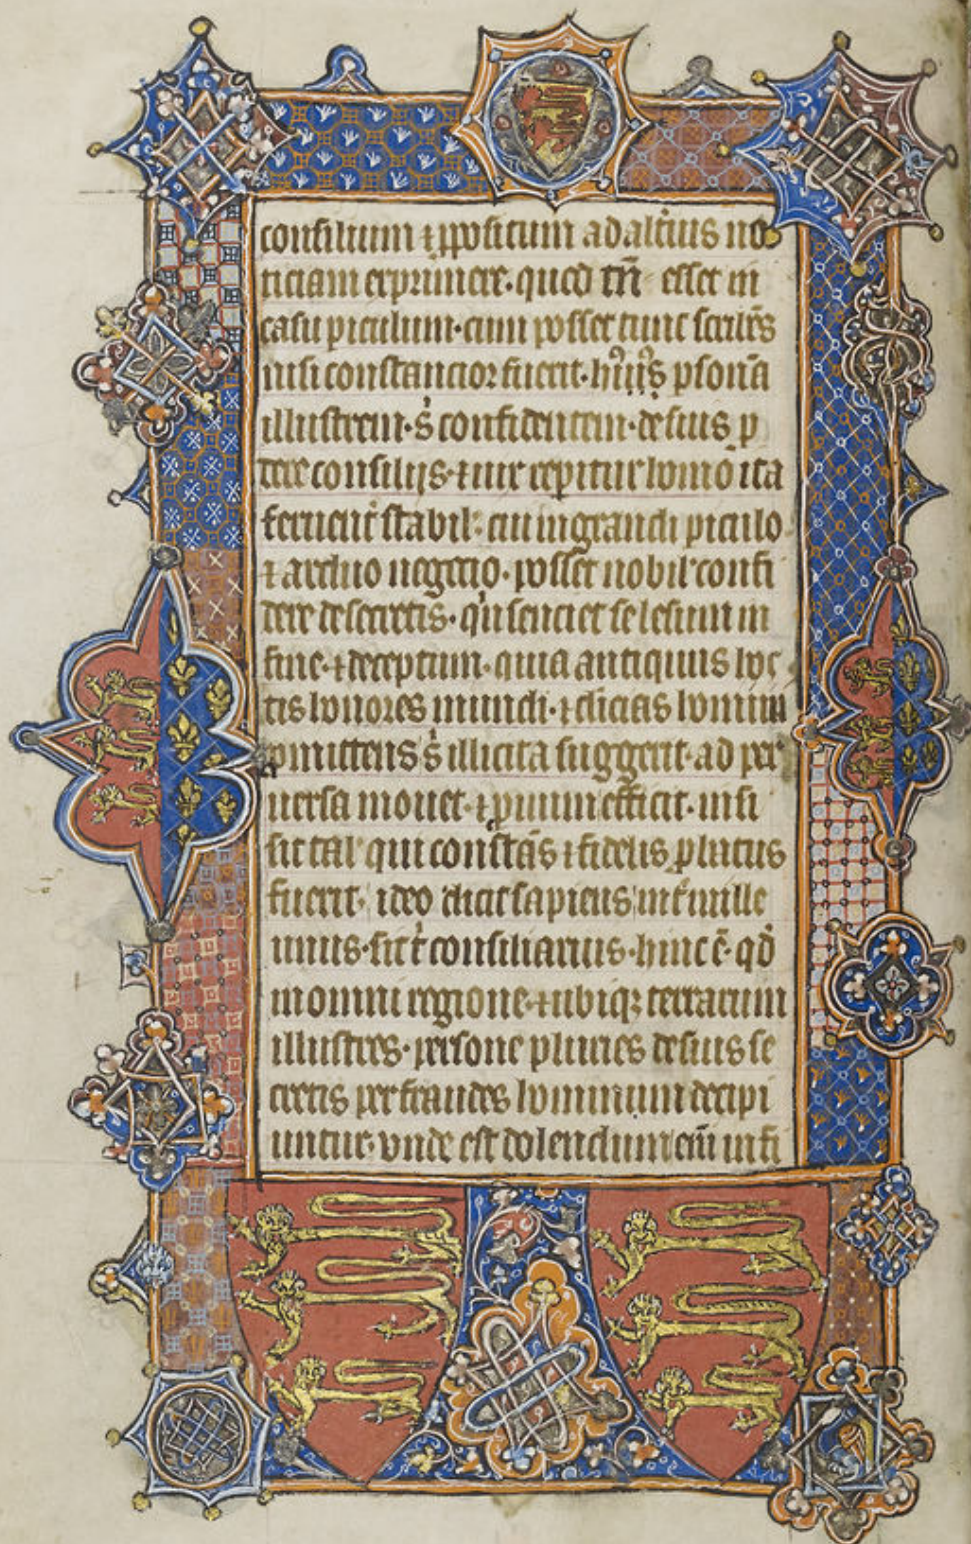 consilium ⁊ ppositum ad alt̾ius no
ticiam exprimere. quod tn̄ esset in
casu piculum. cum posset tunc scelēs
nisi constancior fuerit. hui9 psonā
illustrem. s; confidentem. de suis p
dere consiliis. ⁊ uix repitur homo ita
feruent̾ stabil. cui in grandi piculo
⁊ arduo negocio. posset nobil confi
dere de secretis. qn senciet se lesum in
fine. ⁊ deceptum. quia antiquus hos
tis honores mundi. ⁊ diuicias homini
omittens s; illicita suggerit. ad per
uersa mouet. ⁊ efficit. nisi
sit tal qui constās ⁊ fidelis plutus
fuerit. ideo dicit sapiens int̾ mille
unus. sit t̾ consiliarius. hinc ē. qd̾
in omni regione. ⁊ ubiq; terrarum
illustres. persone plures de suis se
cretis per fraudes hominum decipi
untur. vnde est dolendum eū nisi